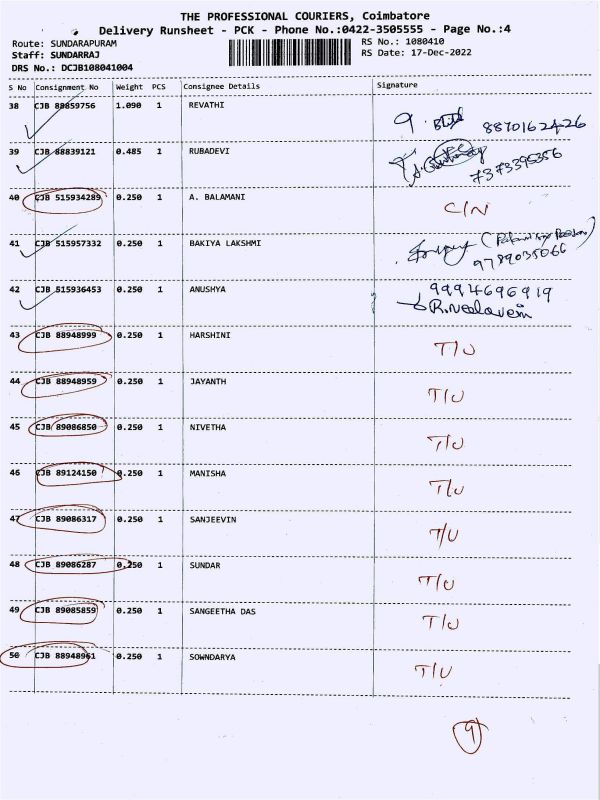 THE PROFESSIONAL COURIERS, Coimbatore
Delivery Runsheet - PCK - Phone No.:0422-3505555 - Page No.:4
Route: SUNDARAPURAM RS No.: 1080410
Staff: SUNDARRAJ RS Date: 17-Dec-2022
DRS No.: DCJB108041004
S No Consignment No Weight PCS Consignee Details Signature
38 CJB 88859756 1.090 1 REVATHI
8870162426
39 CJB 88839121 0.485 1 RUBADEVI
7373395356
40 CJB 515934289 0.250 1 A. BALAMANI C/N
41 CJB 515957332 0.250 1 BAKIYA LAKSHMI
9789035066
42 CJB 515936453 0.250 1 ANUSHYA 9994696919
R.Neelaveni
43 CJB 88948999 0.250 1 HARSHINI T/U
44 CJB 88948959 0.250 1 JAYANTH T/U
45 CJB 89086850 0.250 1 NIVETHA T/U
46 CJB 89124150 0.250 1 MANISHA T/U
47 CJB 89086317 0.250 1 SANJEEVIN T/U
48 CJB 89086287 0.250 1 SUNDAR T/U
49 CJB 89085859 0.250 1 SANGEETHA DAS T/U
50 CJB 88948961 0.250 1 SOWNDARYA T/U
9